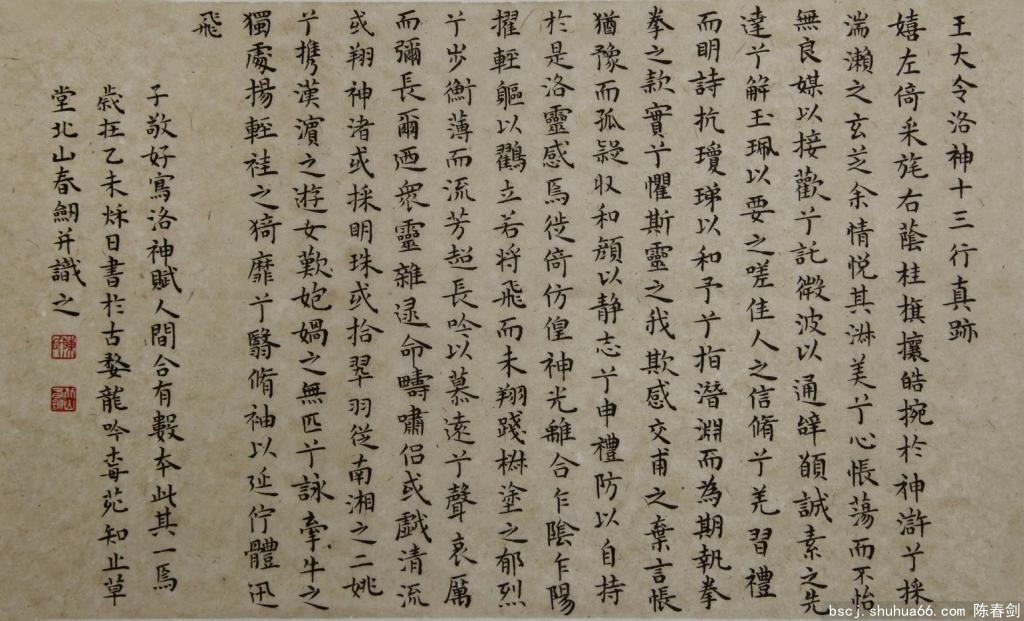 王大令洛神十三行真跡
嬉左倚采旄右蔭桂旗攘皓捥於神滸兮採
湍瀨之玄芝余情悅其淋美兮心悵蕩而不怡
無良媒以接歡兮託微波以通辝願誠素之先
達兮解玉珮以要之嗟佳人之信脩兮羌習禮
而明詩抗瓊珶以和予兮指潛淵而為期執拳
拳之款實兮懼斯靈之我欺感交甫之棄言悵
猶豫而孤疑収和顏以静志兮申禮防以自持
於是洛靈感焉徙倚仿偟神光離合乍陰乍陽
擢輕軀以鸖立若將飛而未翔踐椒塗之郁烈
兮步衡薄而流芳超長吟以慕遠兮聲哀厲
而彌長爾迺衆靈雜遝命疇嘯侣或戲清流
或翔神渚或採明珠或拾翠羽從南湘之二姚
兮携漢濱之遊女歎匏媧之無匹兮詠牽牛之
獨處揚輕袿之猗靡兮翳脩袖以延佇體迅
飛
子敬好寫洛神賦人間合有數本此其一焉
歲在乙未秌日書於古婺龍吟壽苑知止草
堂北山春劍并識之
bscj.shuhua66.com 陈春剑